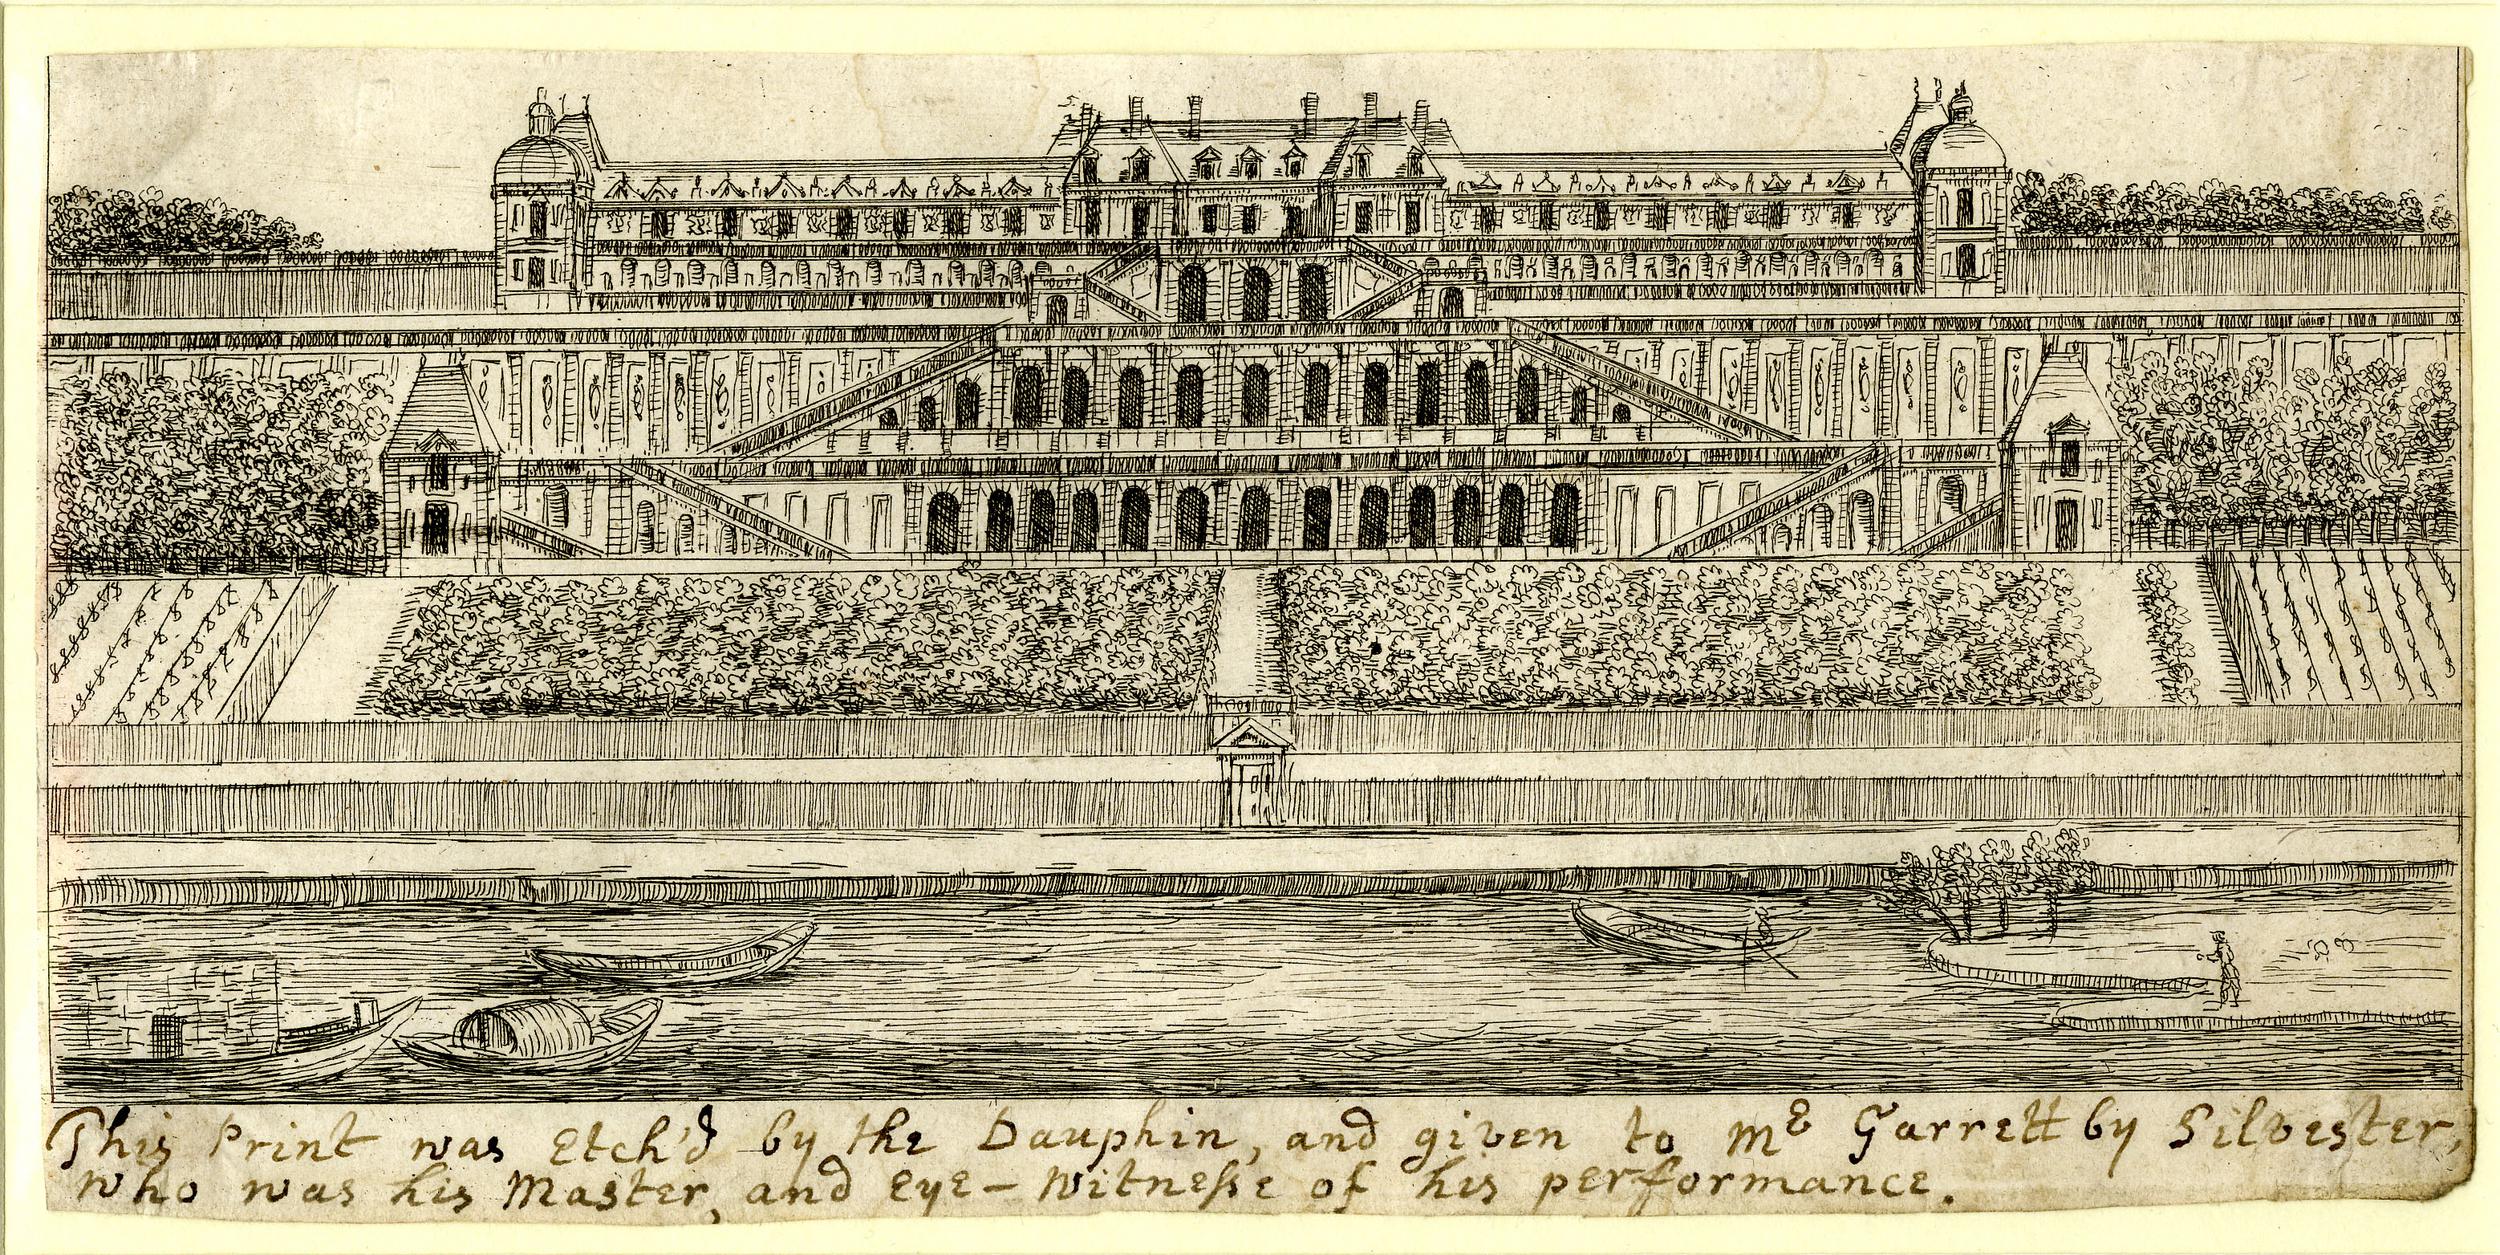 This Print was Etch'd by the Dauphin, and given to Mr Garrett by Silvester,
who was his Master, and Eye-witnesse of his performance.